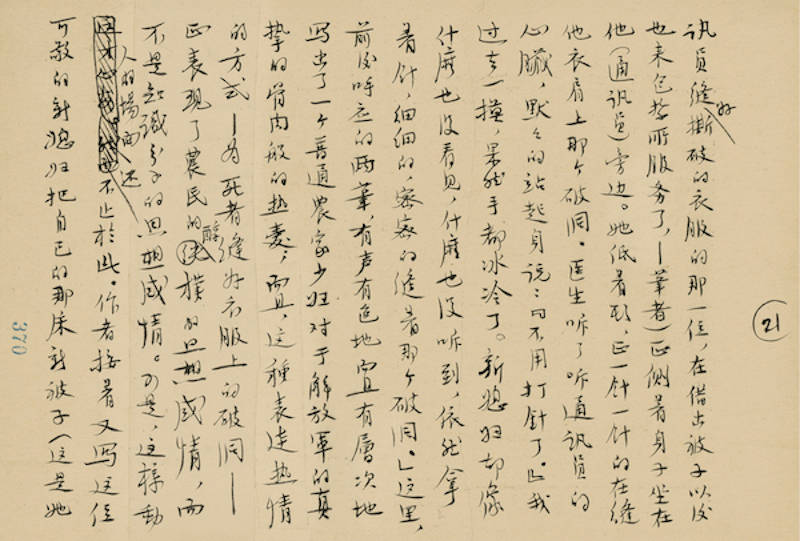 21
訊員缝好撕破的衣服的那一位，在借出被子以後
也来包扎所服务了，—筆者）正侧着身子坐在
他（通訊員）旁边。她低着头，正一针一针的在缝
他衣肩上那个破洞。医生听了听通訊員的
心臟，默々的站起身説：「不用打針了。」我
过去一摸，果然手都冰冷了。新媳妇却像
什麽也没看見，什麽也没听到，依然拿
着针，细细的，密密的缝着那个破洞。」这里，
前後呼应的两筆，有声有色地而且有層次地
写出了一个普通農家少妇对于解放軍的真
挚的骨肉般的热爱；而且，这種表达热情
的方式——为死者缝好衣服上的破洞——
正表現了農民的醇樸的思想感情，而
不是知識分子的思想感情。可是，这样動
人的場面还不止於此。作者接着又写这位
可敬的新媳妇把自己的那床新被子（这是她
370